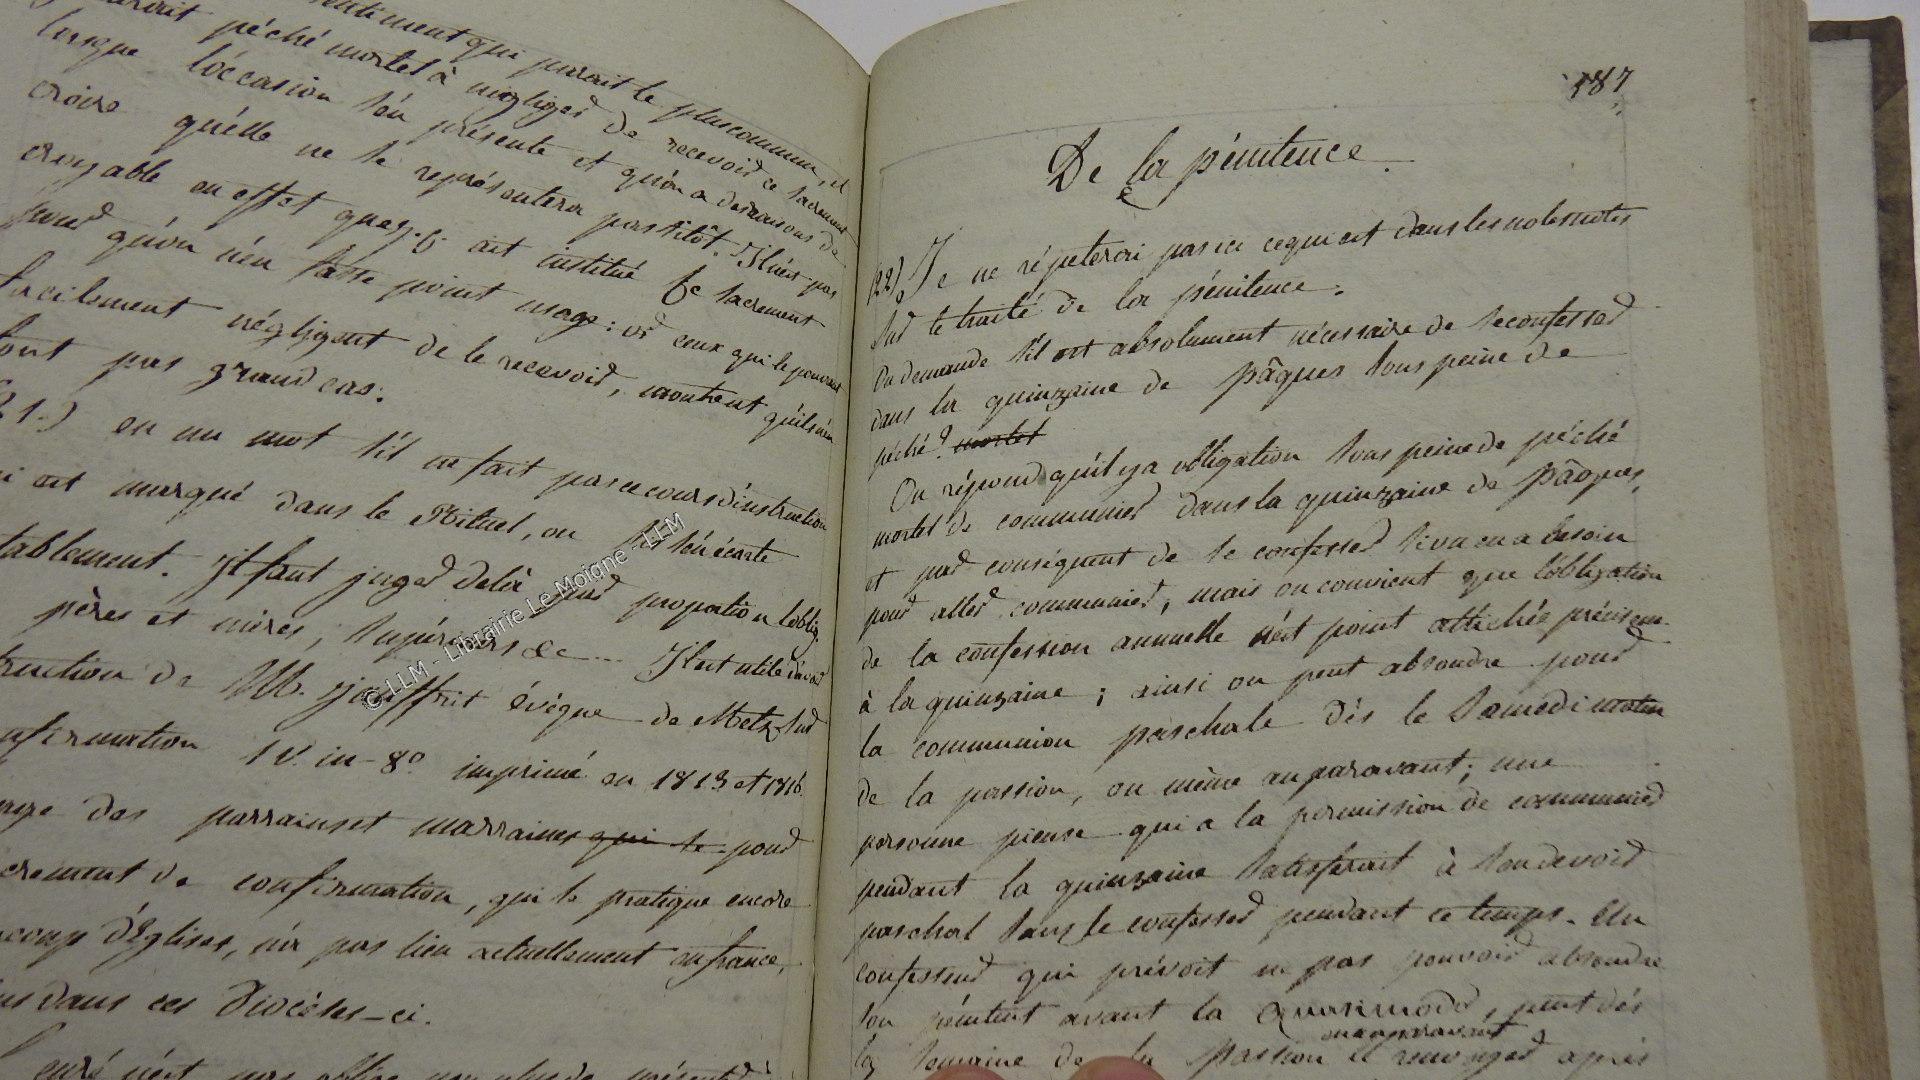 sentiment qui parait le plus commun, il
aurait péché mortel à négliger de recevoir ce sacrement
lorsque l'occasion s'en présente et qu'on a des raisons de
croire qu'elle ne se représentera pas sitôt. Il n'est pas
croyable en effet que J. C. ait institué ce sacrement
pour qu'on n'en fasse point usage : or ceux qui le pouvant
facilement négligent de le recevoir, montrent qu'ils n'en
font pas grand cas.
21.) en un mot s'il ne fait pas ce cours d'instruction
est marqué dans le Rituel, ou s'il s'en écarte
tablement. Il faut juger delà par proportion l'oblig.
pères et mères, supérieurs &c... Il est utile d'avoir
truction de M. Jauffrit évêque de Metz sur
nfirmation 1 V. in-8° imprimé en 1813 et 1816.
des parrains et marraines qui se pour
crement de confirmation, qui se pratique encore
coup d'Églises, n'a pas lieu actuellement en france,
dans ces Diocèses-ci.
Curé n'est pas obligé
187
De la pénitence.
(22) Je ne répeterai pas ici ce qui est dans les notes
sur le traité de la pénitence.
On demande s'il est absolument nécessaire de se confesser
dans la quinzaine de pâques sous peine de
péché? mortel
On répond qu'il y a obligation sous peine de péché
mortel de communier dans la quinzaine de pâques,
et par conséquent de se confesser si on en a besoin
pour aller communier, mais on convient que l'obligation
de la confession annuelle n'est point attachée précisem.
à la quinzaine ; ainsi on peut absoudre pour
la communion paschale dès le Samedi matin
de la passion, ou même auparavant ; une
personne pieuse qui a la permission de communier
pendant la quinzaine satisferait à son devoir
paschal sans se confesser pendant ce temps. Un
confesseur qui prévoit ne pas pouvoir absoudre
son pénitent avant la Quasimodo, peut dès
ou auparavant
la semaine de la passion le renvoyer après
© LLM - Librairie Le Moigne - LLM